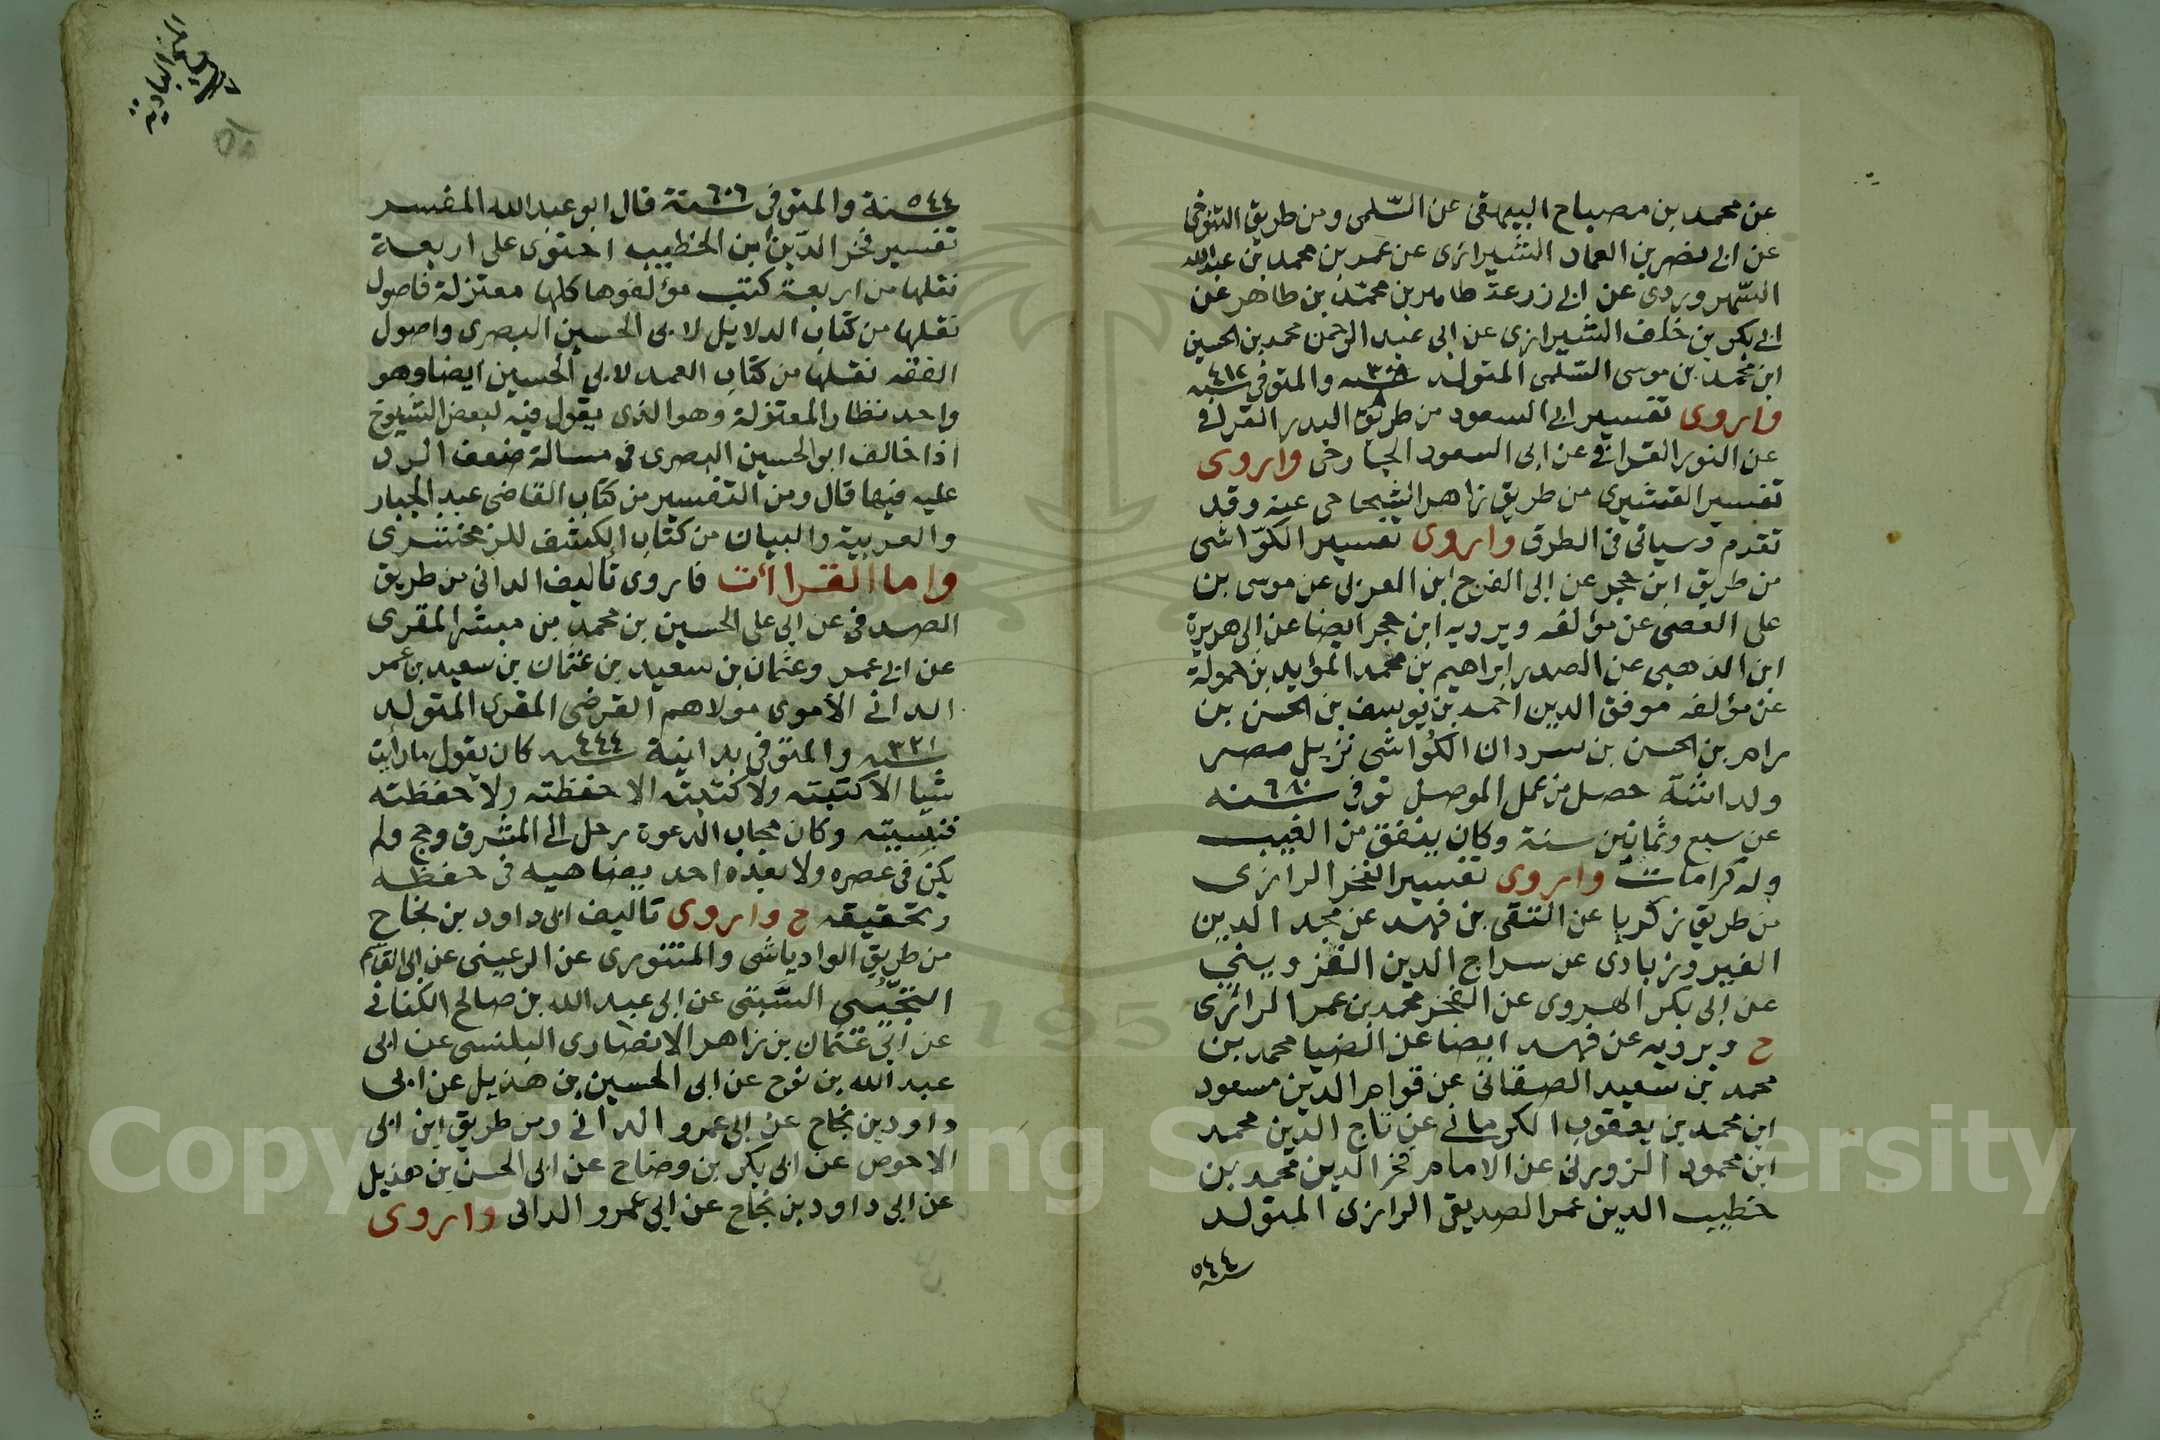 عن محمد بن مصباح البيهقى عن السّلمى ومن طريق التنوخى
عن ابى نصر بن العماد الشيرازى عن عمر بن محمد بن عبدالله
السّهروردى عن ابى زرعة طاهر بن محمّد بن طاهر عن
ابى بكر بن خلف الشيرازى عن ابى عبد الرحمن محمد بن الحسين
ابن محمد بن موسى السّلمى المتولد سنه والمتوفى سنه ٤١٢
واروى تفسير ابى السعود من طريق البدر القرافى
عن النور القرافى عن ابى السعود الجارحى واروى
تفسير القشيرى من طريق زاهر الشحامى عنه وقد
تقدم وسياتى فى الطرق واروى تفسير الكوّاشى
من طريق ابن حجر عن ابى الفرج ابن العزى عن موسى بن
على القصى عن مؤلفه ويرويه ابن حجر ايضا عن ابى هريرة
ابن الذهبى عن الصدر ابراهيم بن محمد المؤيد بن حمولة
عن مؤلفه موفق الدين احمد بن يوسف بن الحسن بن
رامر بن الحسن بن سردان الكُواشى نزيل مصر
ولد سنة حصل من عمل الموصل توفى سنه ٦٨٠
عن سبع وثمانين سنة وكان ينفق من الغيب
وله كرامات واروى تفسير الفخر الرازى
من طريق زكريا عن التقى بن فهد عن مجد الدين
الفيروزبادى عن سراج الدين القزوينى
عن ابى بكر الهروى عن الفخر محمد بن عمر الرازى
ح ويرويه عن فهد ايضا عن الضيا محمد بن
محمد بن سعيد الصغانى عن قوام الدين مسعود
ابن محمد بن يعقوب الكرمانى عن تاج الدين محمد
ابن محمود الزوزنى عن الامام فخر الدين محمد بن
خطيب الدين عمر الصديقى الرازى المتولد
سنة ٥٤٤
البادية
سنة ٥٤٤ والمتوفى سنة ٦٠٦ قال ابو عبد الله المفسر
تفسير فخر الدين ابن الخطيب احتوى على اربعة
نقلها من اربعة كتب مؤلفوها كلها معتزلة فاصول
نقلها من كتاب الدلايل لابى الحسين البصرى واصول
الفقه نقلها من كتاب العمد لابى الحسين ايضا وهو
واحد نظار المعتزلة وهو الذى يقول فيه لبعض الشيوخ
اذا خالف ابو الحسين البصرى فى مسالة ضعف الرد
عليه فيها قال ومن التفسير من كتاب القاضى عبد الجبار
والعربية والبيان من كتاب الكشف للزمخشرى
واما القراات فاروى تأليف الدانى من طريق
الصدفى عن ابى على الحسين بن محمد بن مبشر المقرى
عن ابى عمر وعثمان بن سعيد بن عثمان بن سعيد بن عمر
الدانى الأموى مولاهم القرضى المقرى المتولد
سنه ٣٢١ والمتوفى بدانية سنه ٤٤٤ كان يقول ما رأيت
شيا الا كتبته ولا كتبته الا حفظته ولا حفظته
فنسيته وكان مجاب الدعوة رحل الى المشرق وحج ولم
يكن فى عصره ولا بعده احد يضاهيه فى حفظه
وتحقيقه ح واروى تاليف ابى داود بن نجاح
من طريق الوادياشى والمنتورى عن الرعينى عن ابى القاسم
التجّيبى السّبتى عن ابى عبد الله بن صالح الكنانى
عن ابى عثمان بن زاهر الانصارى البلنسى عن ابى
عبد الله بن نوح عن ابى الحسين بن هذيل عن ابى
داود بن نجاح عن ابى عمرو الدانى ومن طريق ابن ابى
الاحوص عن ابى بكر بن وضاح عن ابى الحسن بن هذيل
عن ابى داود بن نجاح عن ابى عمرو الدانى واروى
Copyright © King Saud University
195